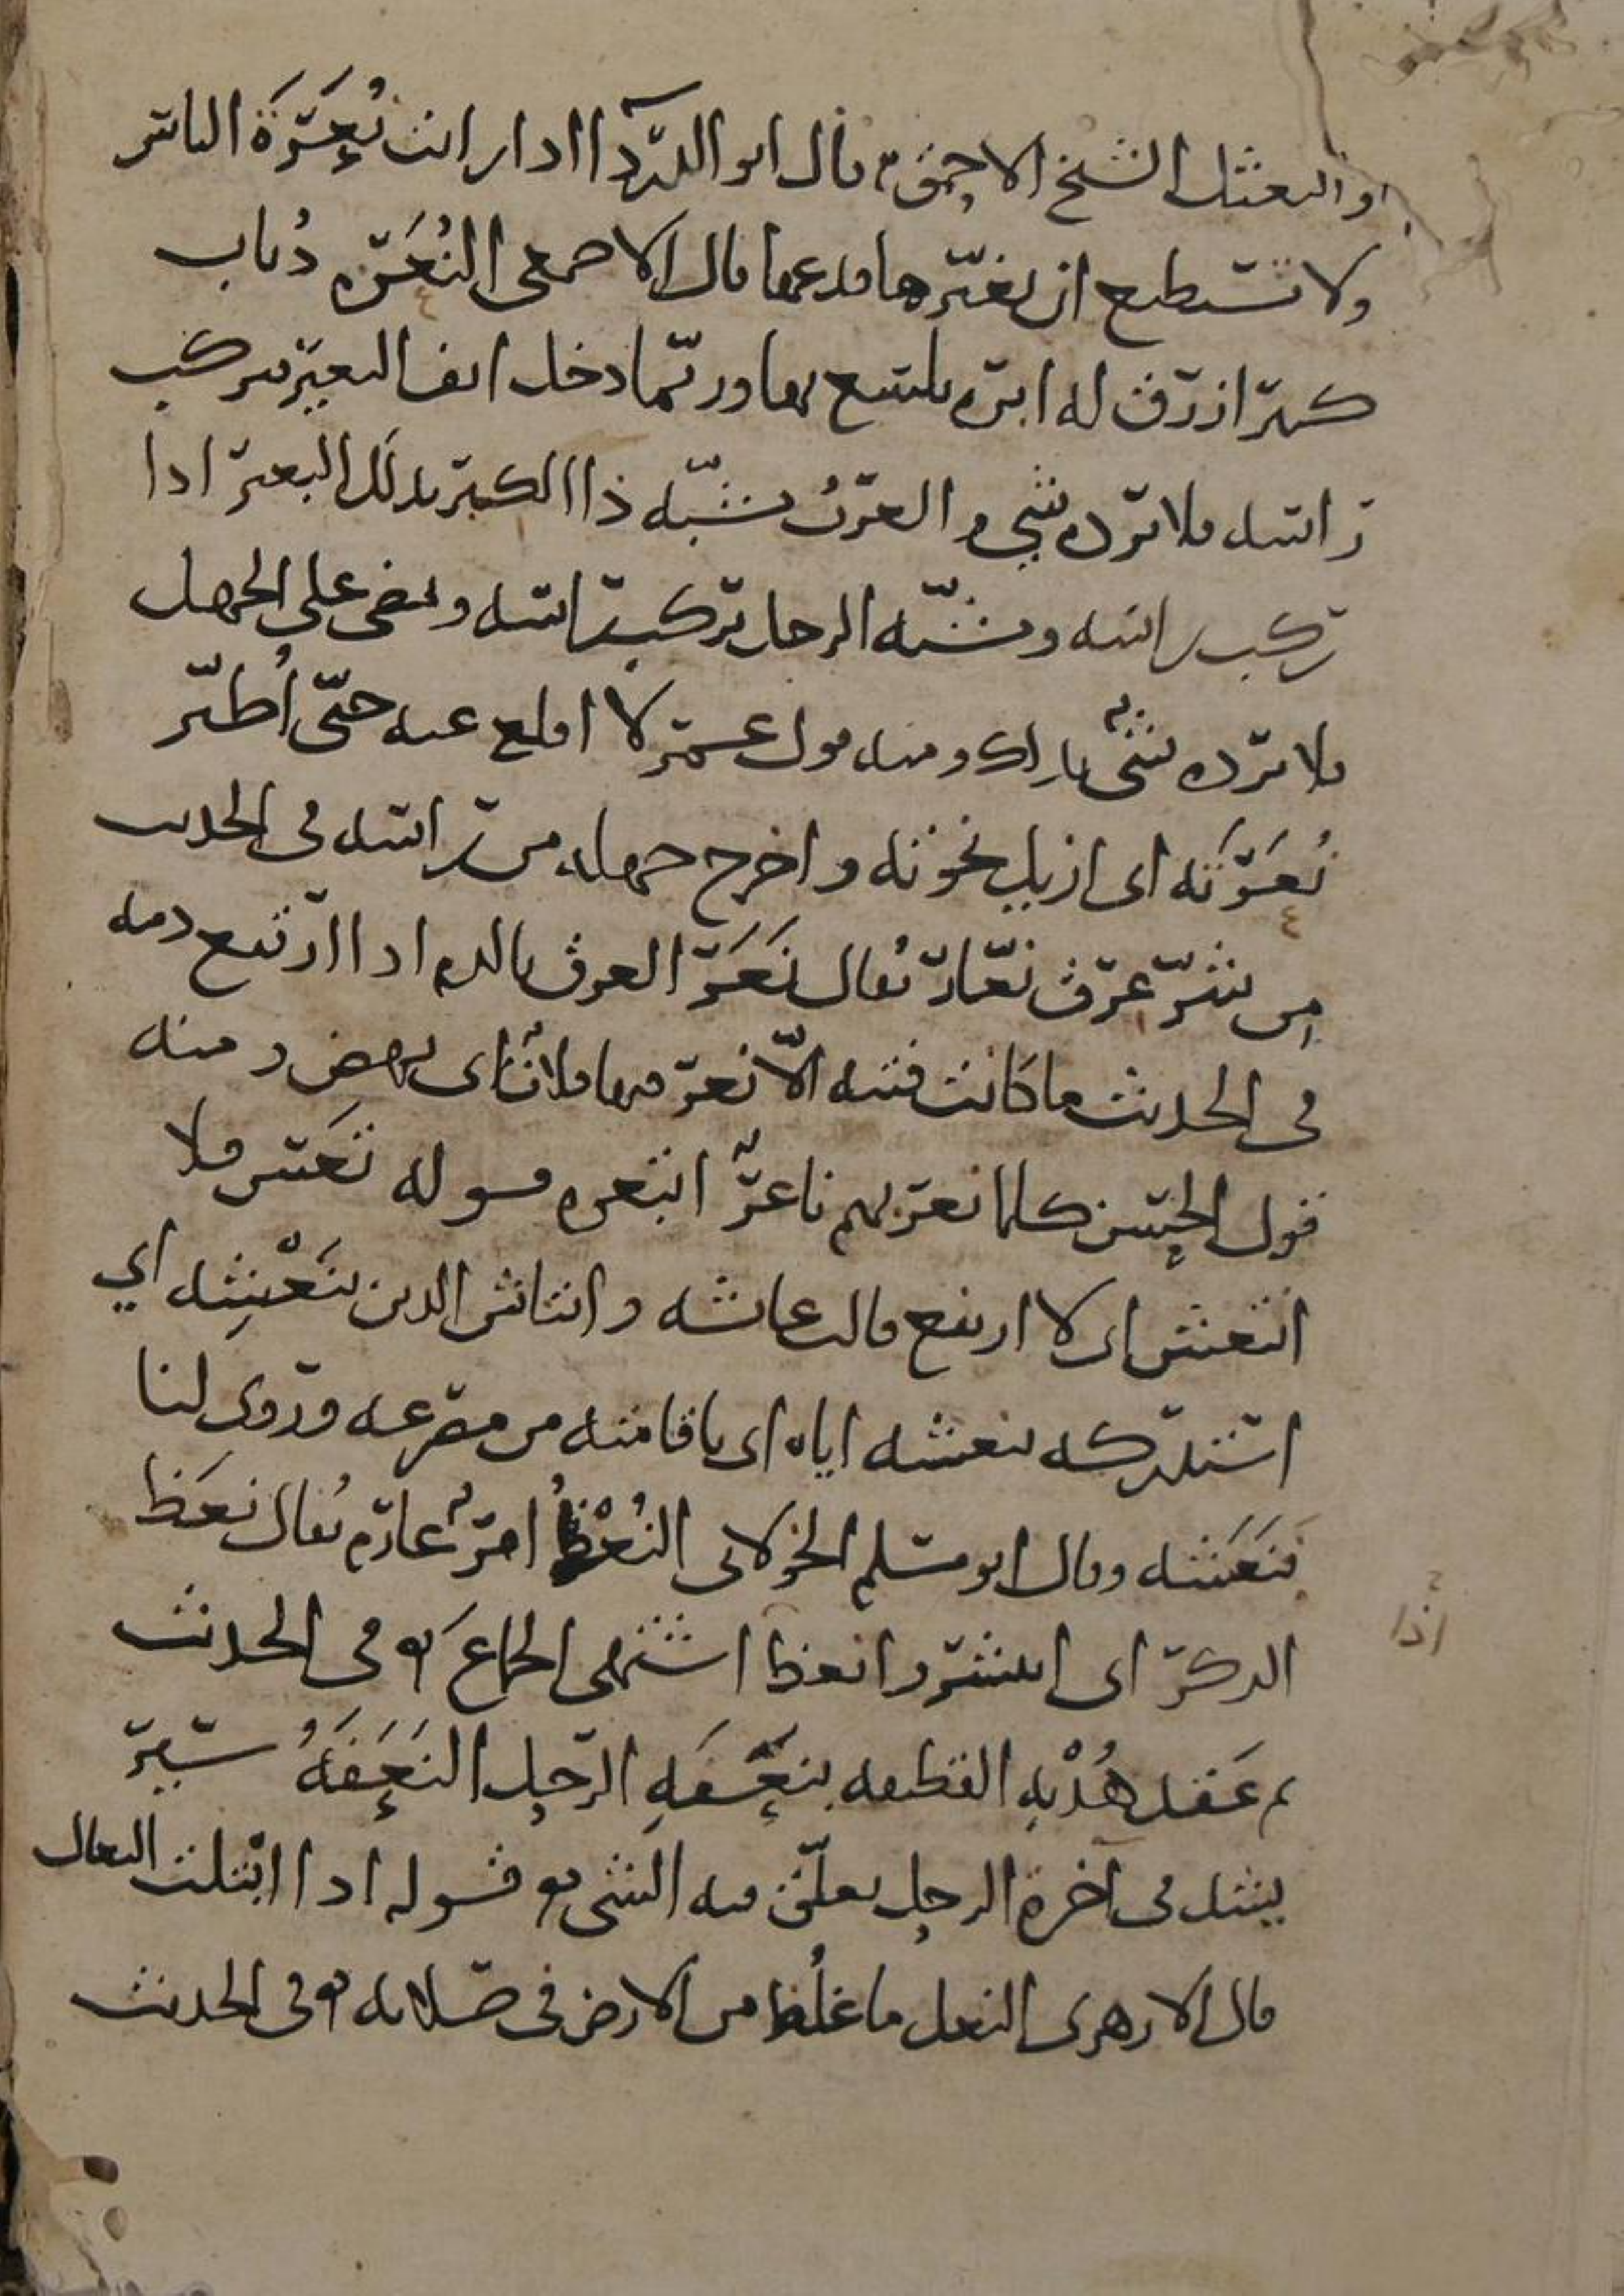 والنعثل الشيخ الاحمق قال ابو الدرداء اذا رايت نُعَرَةَ الناس
ولا تستطيع ان تغيّرها فدعها قال الاصمعى النُعَرَه ذُباب
كبير ازرق له ابره يلسع بها وربّما دخل انف البعير فيركب
راسه فلا يرده شي والعربُ تشبّه ذا الكبر بذلك البعير اذا
ركب راسه وتشبّه الرجل يركب راسه ويمضى على الجهل
فلا يرده شى بذلك ومنه قول عمر لا اقلع عنه حتّى اُطيّر
نُعَرَتَه اى ازيل نخوته واخرج جهله من راسه فى الحديث
من شرّ عرق نعّار يُقال نَعَرَ العرق بالدم اذا ارتفع دمه
فى الحديث ما كانت فتنه الّا نعر فيها فلان اى نهض ومنه
قول الحسن كلما نعر بهم ناعرٌ اتبعوه قوله تَعَس فلا
انتعش اى لا ارتفع قالت عائشه وانتاش الدين بنَعْشِه اي
استدركه بنعشه اياه اى باقامته من مصرعه وروى لنا
فنَعَشه وقال ابو مسلم الخولانى النُعْظُ امرٌ عارم يُقال نعَظ
الذكر اى انتشر وانعظ اشتهى الجماع فى الحديث
اذا
ثم عَقد هُدْبه القطيفه بنَعَفَهِ الرحل النَعَفَهُ سير
يشد فى آخره الرحل يعلّق فيه الشى قوله اذا ابتلت النعال
قال الازهرى النعل ما غلُظ من الارض فى صلابه وفى الحديث